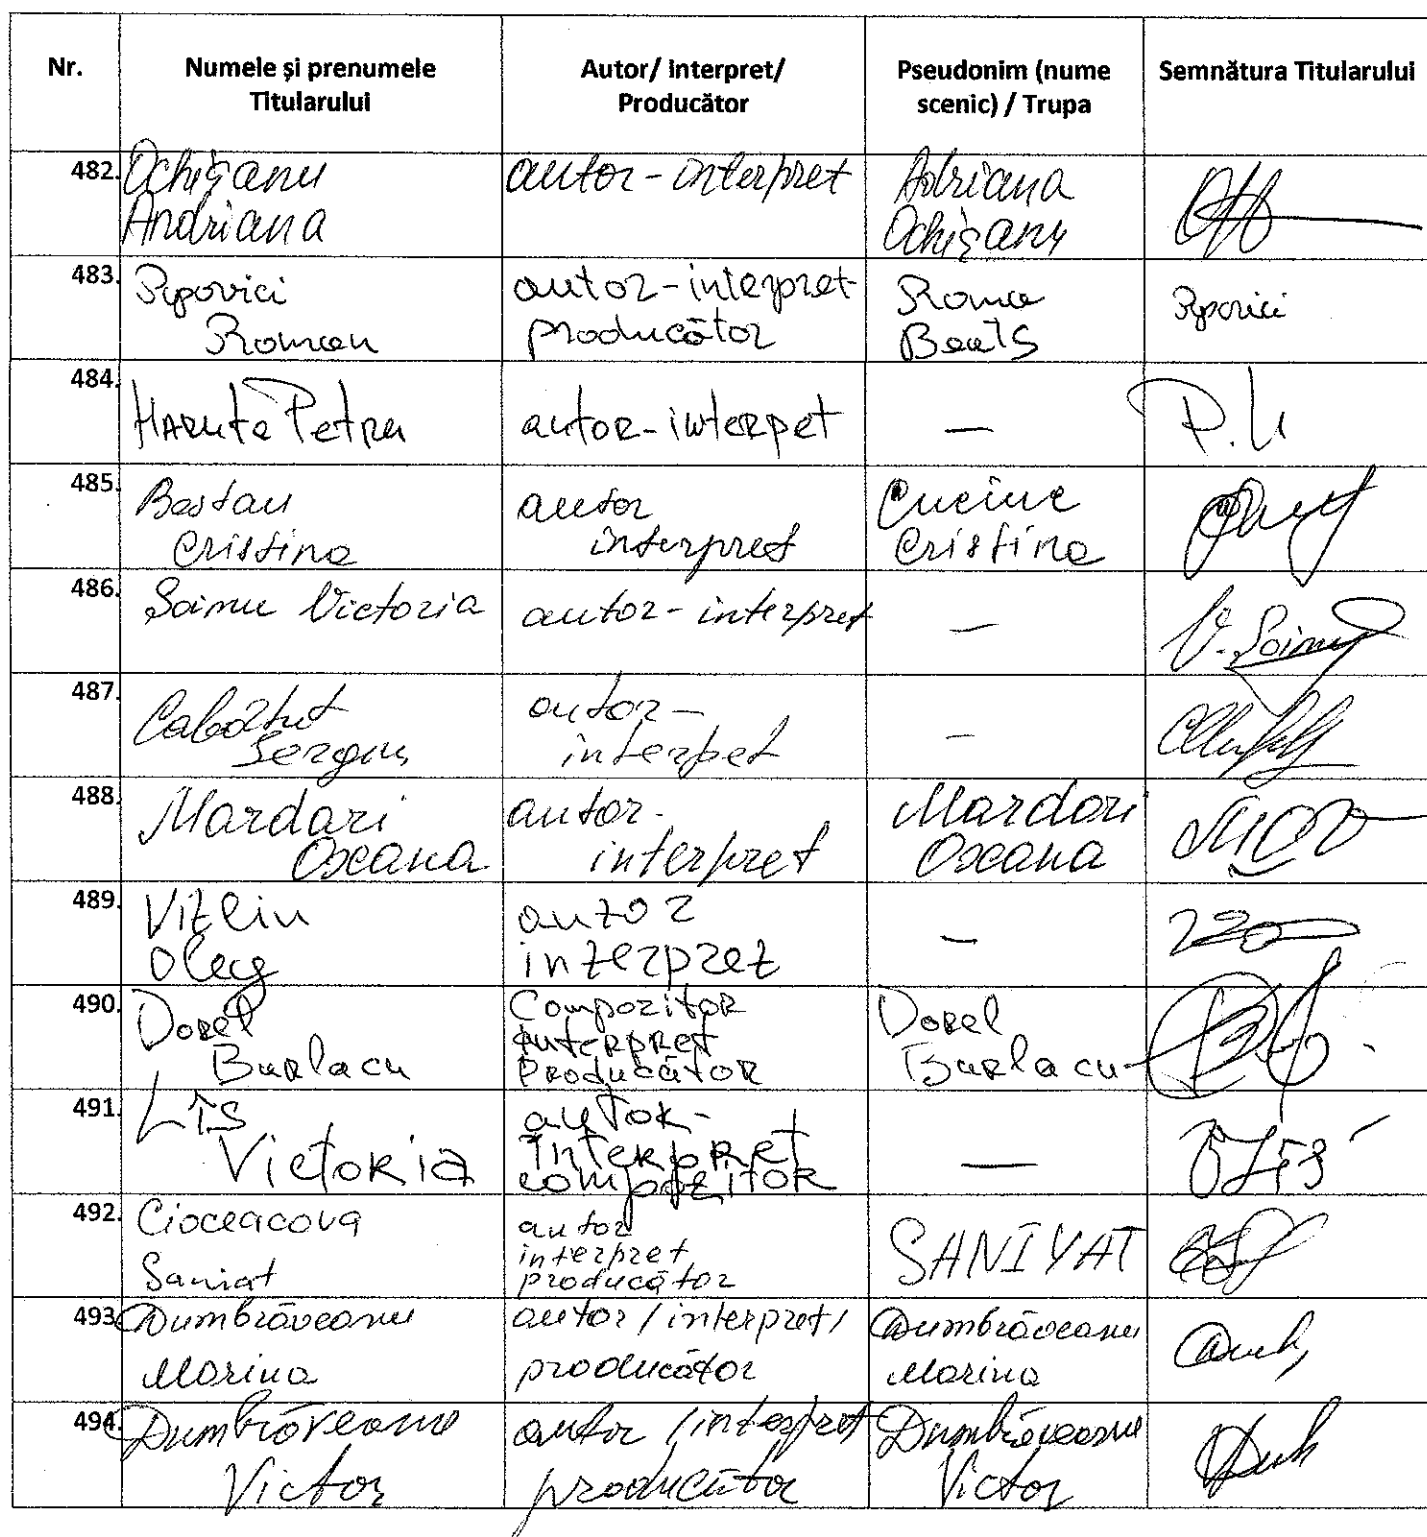 Nr.
Numele și prenumele
Titularului
Autor/ Interpret/
Producător
Pseudonim (nume
scenic) / Trupa
Semnătura Titularului
482.
Ochișanu
Andriana
autor - interpret
Adriana
Ochișanu
483.
Popovici
Roman
autor-interpret
producător
Roma
Beats
Popovici
484.
Haruța Petru
autor-interpet
—
P.H
485.
Bostan
Cristina
autor
interpret
Cuciuc
Cristina
486.
Soimu Victoria
autor - interpret
—
V. Soimu
487.
Cabătut
Sergiu
autor -
interpet
—
488.
Mardari
Oxeana
autor -
interpret
Mardari
Oxeana
489.
Vitliu
Oleg
autor
interpret
—
490.
Dorel
Burlacu
Compozitor
interpret
Producător
Dorel
Burlacu
491.
Lîs
Victoria
autor-
interpret
compozitor
—
492.
Cioceacova
Saniat
autor
interpret
producător
SANIYAT
493.
Dumbrăveanu
Marina
autor / interpret /
producător
Dumbrăveanu
Marina
494.
Dumbrăveanu
Victor
autor / interpret
producător
Dumbrăveanu
Victor